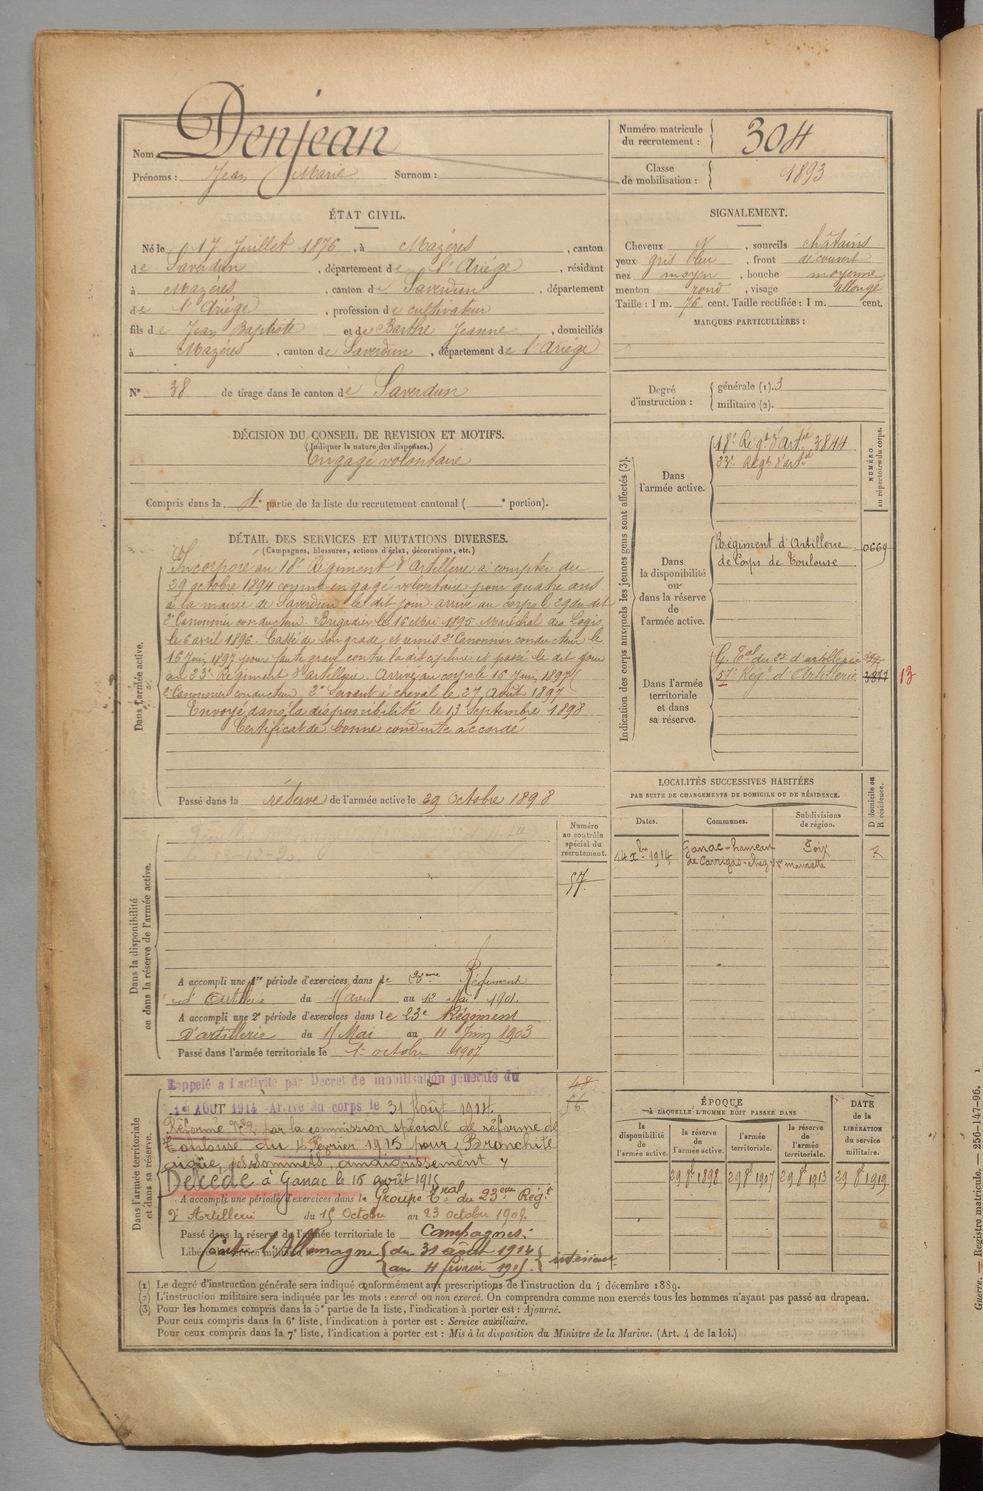 Nom Denjean
Prénoms : Jean Marie Surnom :
Numéro matricule du recrutement : 304
Classe de mobilisation : 1893
ÉTAT CIVIL.
Né le 17 Juillet 1876, à Mazères, canton
de Saverdun, département de l'Ariège, résidant
à Mazères, canton de Saverdun, département
de l'Ariège, profession de cultivateur
fils de Jean Baptiste et de Barthe Jeanne, domiciliés
à Mazères, canton de Saverdun, département de l'Ariège
N° 38 de tirage dans le canton de Saverdun
SIGNALEMENT.
Cheveux , sourcils châtains
yeux gris bleu, front découvert
nez moyen, bouche moyenne
menton rond, visage allongé
Taille : 1 m. 76 cent. Taille rectifiée : 1 m. cent.
MARQUES PARTICULIÈRES :
Degré d'instruction : générale (1). 3
militaire (2).
DÉCISION DU CONSEIL DE REVISION ET MOTIFS.
(Indiquer la nature des dispenses.)
Engagé volontaire
Compris dans la 4e partie de la liste du recrutement cantonal ( e portion).
DÉTAIL DES SERVICES ET MUTATIONS DIVERSES.
(Campagnes, blessures, actions d'éclat, décorations, etc.)
Dans l'armée active.
Incorporé au 18e Régiment d'Artillerie à compter du
29 octobre 1894 comme engagé volontaire pour quatre ans
à la mairie de Saverdun le dit jour arrivé au corps le 29 du dit
2e Canonnier conducteur. Brigadier le 16 Mai 1895 Maréchal des Logis
le 6 avril 1896. Cassé de son grade et remis 2e Canonnier conducteur le
16 Juin 1897 pour faute grave contre la discipline et passé le dit jour
au 33e Régiment d'artillerie. Arrivé au corps le 16 Juin 1897
2e Canonnier conducteur, 2e Servant à cheval le 27 Août 1897
Envoyé dans la disponibilité le 13 Septembre 1898
Certificat de bonne conduite accordé
Passé dans la réserve de l'armée active le 29 Octobre 1898
Indication des corps auxquels les jeunes gens sont affectés (3).
NUMÉRO au répertoire du corps.
Dans l'armée active.
18e Régt d'Artie 3844
33e Régt d'artie
Dans la disponibilité ou dans la réserve de l'armée active.
Régiment d'Artillerie 0669
de Corps de Toulouse
Dans l'armée territoriale et dans sa réserve.
G. Tal du 23e d'artillerie
57e Régt d'Artillerie 13
LOCALITÉS SUCCESSIVES HABITÉES
PAR SUITE DE CHANGEMENTS DE DOMICILE OU DE RÉSIDENCE.
D domicile ou R résidence.
Dates. Communes. Subdivisions de région.
14 Xbre 1914 Ganac - hameau Foix R
de Carrigas - chez
Dans la disponibilité ou dans la réserve de l'armée active.
Numéro au contrôle spécial du recrutement.
57
A accompli une 1re période d'exercices dans le 23eme Régiment
d'Artillerie du 15 avril au 12 Mai 1901.
A accompli une 2e période d'exercices dans le 23e Régiment
d'artillerie du 15 Mai au 11 Juin 1903
Passé dans l'armée territoriale le 1er octobre 1907
Dans l'armée territoriale et dans sa réserve.
Rappelé à l'activité par Décret de mobilisation générale du
1er AOUT 1914 Arrivé au corps le 31 Août 1914.
Réformé N° 2 par la commission spéciale de réforme de
Toulouse du 4 Février 1915 pour "Bronchite
aigüe, des sommets, amaigrissement"
Décédé à Ganac le 16 août 1915
A accompli une période d'exercices dans le Groupe Tral du 23eme Régt
d'Artillerie du 15 Octobre au 23 octobre 1909.
Passé dans la réserve de l'armée territoriale le
Campagnes :
Libéré du service militaire le
Contre l'Allemagne du 31 août 1914 intérieur
au 4 février 1915.
ÉPOQUE
À LAQUELLE L'HOMME DOIT PASSER DANS
DATE de la LIBÉRATION du service militaire.
la disponibilité de l'armée active. la réserve de l'armée active. l'armée territoriale. la réserve de l'armée territoriale.
29 8bre 1898 29 8bre 1907 29 8bre 1913 29 8bre 1919
(1) Le degré d'instruction générale sera indiqué conformément aux prescriptions de l'instruction du 4 décembre 1889.
(2) L'instruction militaire sera indiquée par les mots : exercé ou non exercé. On comprendra comme non exercés tous les hommes n'ayant pas passé au drapeau.
(3) Pour les hommes compris dans la 5e partie de la liste, l'indication à porter est : Ajourné.
Pour ceux compris dans la 6e liste, l'indication à porter est : Service auxiliaire.
Pour ceux compris dans la 7e liste, l'indication à porter est : Mis à la disposition du Ministre de la Marine. (Art. 4 de la loi.)
Guerre. — Registre matricule. — 256-147-96.